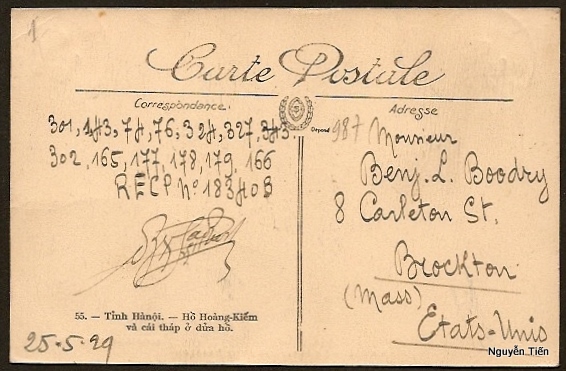 1
Carte Postale
Correspondance.
Adresse
Déposé
301, 143, 74, 76, 324, 327, 343
302, 165, 177, 178, 179, 166
RECP No 18340B
55. — Tỉnh Hànội. — Hồ Hoàng-Kiếm
và cái tháp ở dữa hồ.
25-5-29
987
Monsieur
Benj. L. Boodry
8 Carleton St.
Brockton
(Mass)
Etats-Unis
Nguyễn Tiến